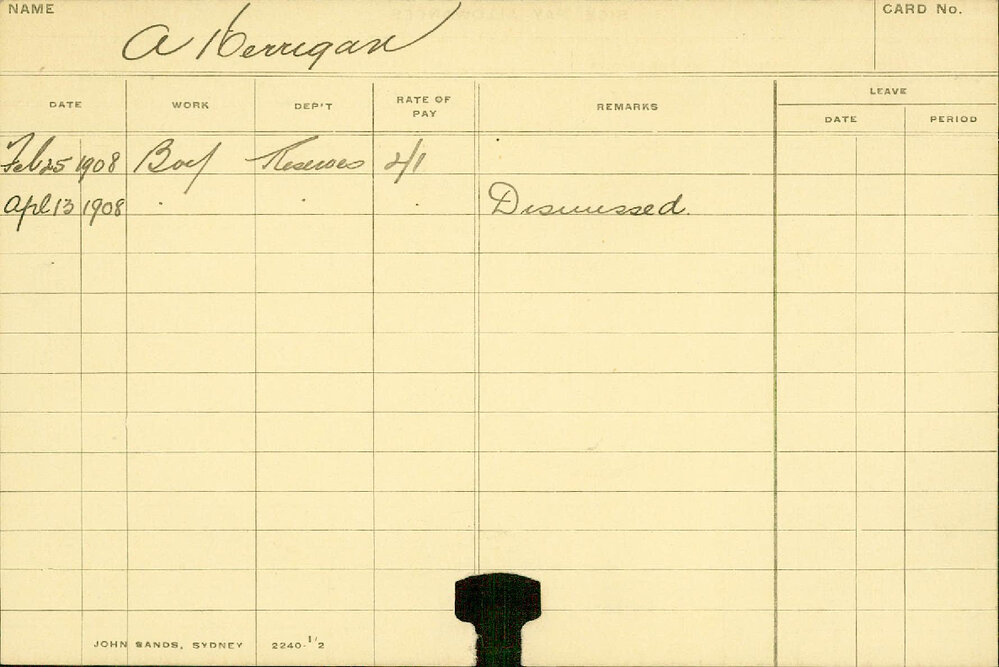 NAME
CARD No.
A Kerrigan
DATE WORK DEP'T RATE OF PAY REMARKS LEAVE
DATE PERIOD
Feb 25 1908 Boy Reserves 2/1
Apl 13 1908 . . . Dismissed.
JOHN SANDS, SYDNEY 2240-1/2